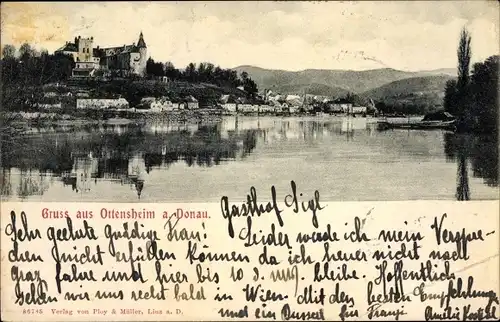 Gruss aus Ottensheim a. Donau.
Gasthof Sigl
Sehr geehrte gnädige Frau! Leider werde ich mein Verspre-
chen nicht erfüllen können da ich heuer nicht nach
Graz fahre und hier bis 10. bleibe. Hoffentlich
sehen wir uns recht bald in Wien. Mit den besten Empfehlung.
und ein Bussel für Franzi Amelie
86745 Verlag von Ploy & Müller, Linz a. D.